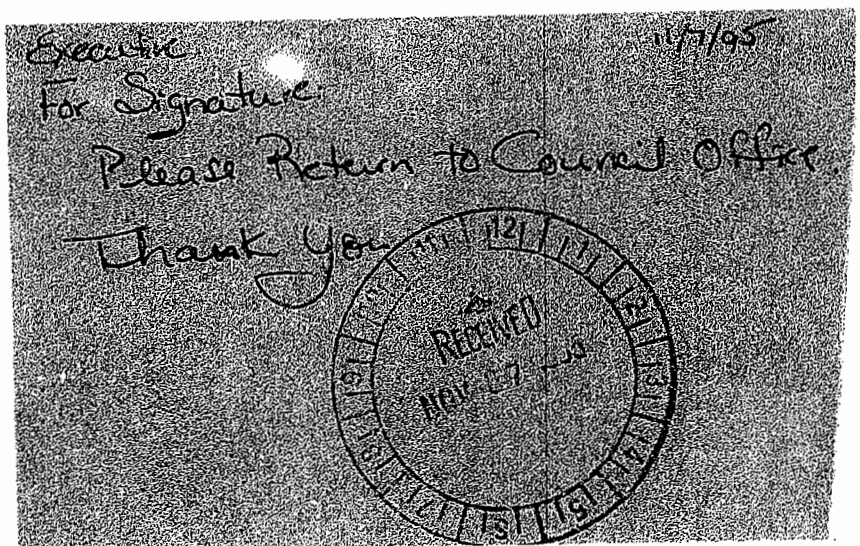 Executive 11/7/95
For Signature.
Please Return to Council Office.
Thank You
12
RECEIVED
NOV 07